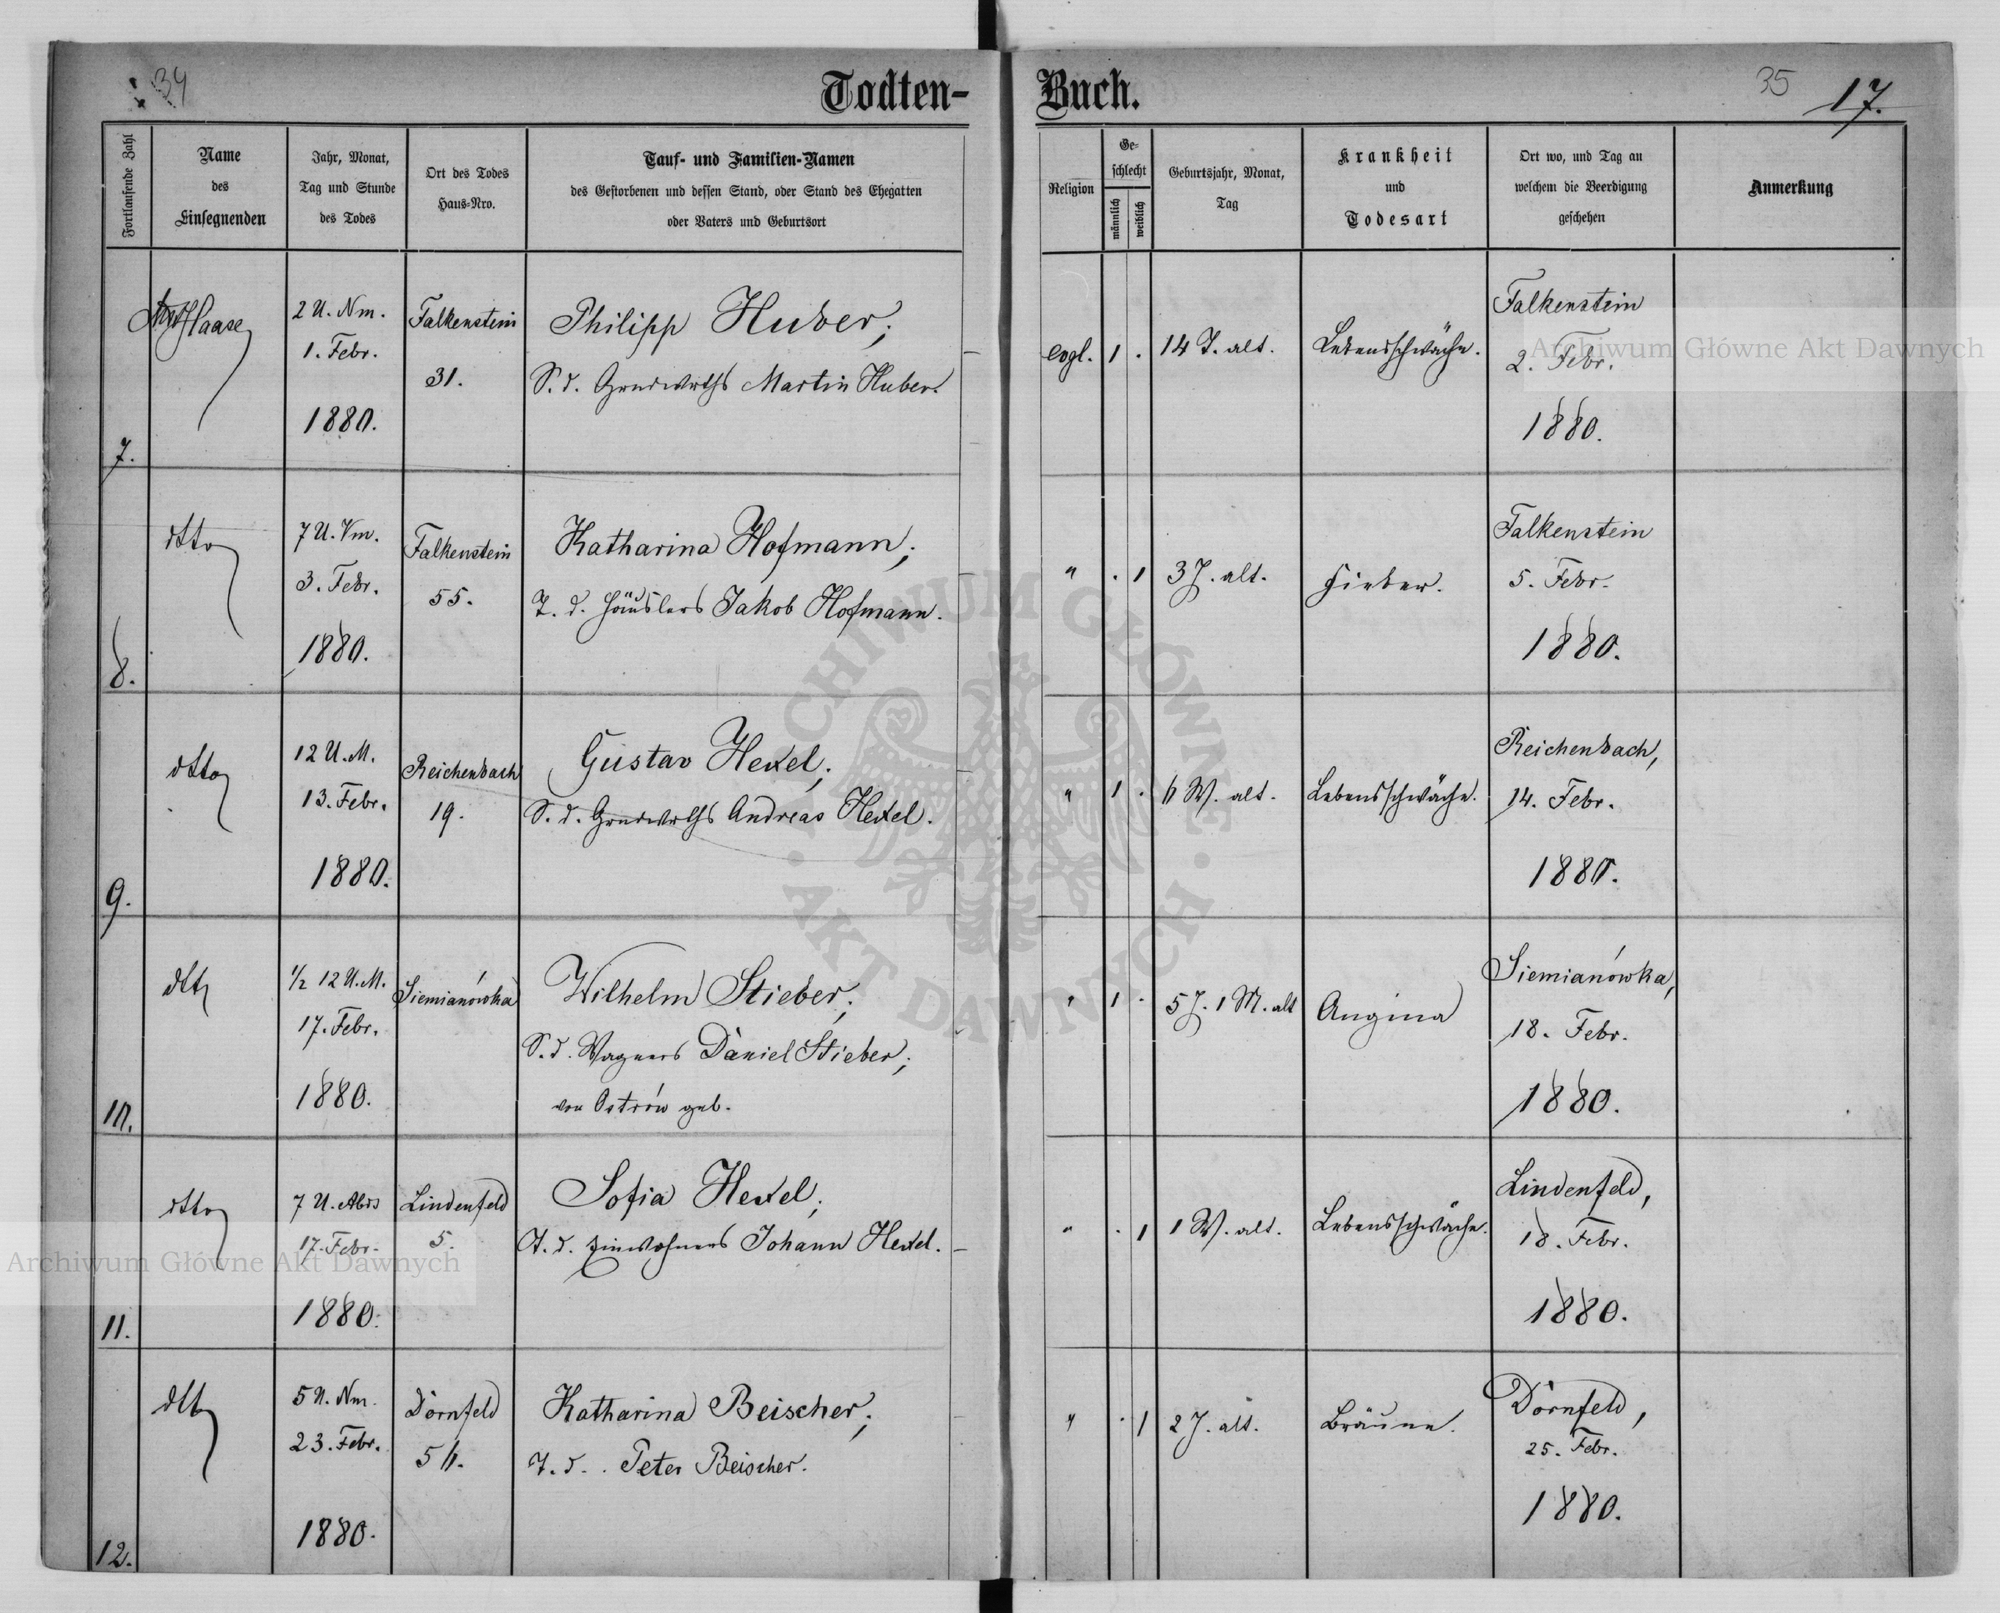 34
Todten-
Buch.
35
17.
Fortlaufende Zahl
Name
des
Einsegnenden
Jahr, Monat,
Tag und Stunde
des Todes
Ort des Todes
Haus-Nro.
Tauf- und Familien-Namen
des Gestorbenen und dessen Stand, oder Stand des Ehegatten
oder Vaters und Geburtsort
Religion
Ge-
schlecht
männlich
weiblich
Geburtsjahr, Monat,
Tag
Krankheit
und
Todesart
Ort wo, und Tag an
welchem die Beerdigung
geschehen
Anmerkung
7.
Haase
2 U. Nm.
1. Febr.
1880.
Falkenstein
31.
Philipp Huber;
S. d. Grndwrths Martin Huber.
evgl.
1
.
14 T. alt.
Lebensschwäche.
Falkenstein
2. Febr.
1880.
8.
dtto
7 U. Vm.
3. Febr.
1880.
Falkenstein
55.
Katharina Hofmann;
T. d. Häuslers Jakob Hofmann.
"
.
1
3 J. alt.
Fieber.
Falkenstein
5. Febr.
1880.
9.
dtto
12 U. M.
13. Febr.
1880.
Reichenbach
19.
Gustav Hexel;
S. d. Grndwrths Andreas Hexel.
"
1
.
6 W. alt.
Lebensschwäche.
Reichenbach,
14. Febr.
1880.
10.
dtto
1/2 12 U. M.
17. Febr.
1880.
Siemianówka
Wilhelm Stieber;
S. d. Wagners Daniel Stieber;
von Ostrów geb.
"
1
.
5 J. 1 M. alt
Angina
Siemianówka,
18. Febr.
1880.
11.
dtto
7 U. Abds
17. Febr.
1880.
Lindenfeld
5.
Sofia Hexel;
T. d. Einwohners Johann Hexel.
"
.
1
1 W. alt.
Lebensschwäche.
Lindenfeld,
18. Febr.
1880.
12.
dtto
5 U. Nm.
23. Febr.
1880.
Dornfeld
56.
Katharina Beischer;
T. d. . Peter Beischer.
"
.
1
2 J. alt.
Bräune.
Dornfeld,
25. Febr.
1880.
Archiwum Główne Akt Dawnych
Archiwum Główne Akt Dawnych
ARCHIWUM GŁÓWNE · AKT DAWNYCH ·